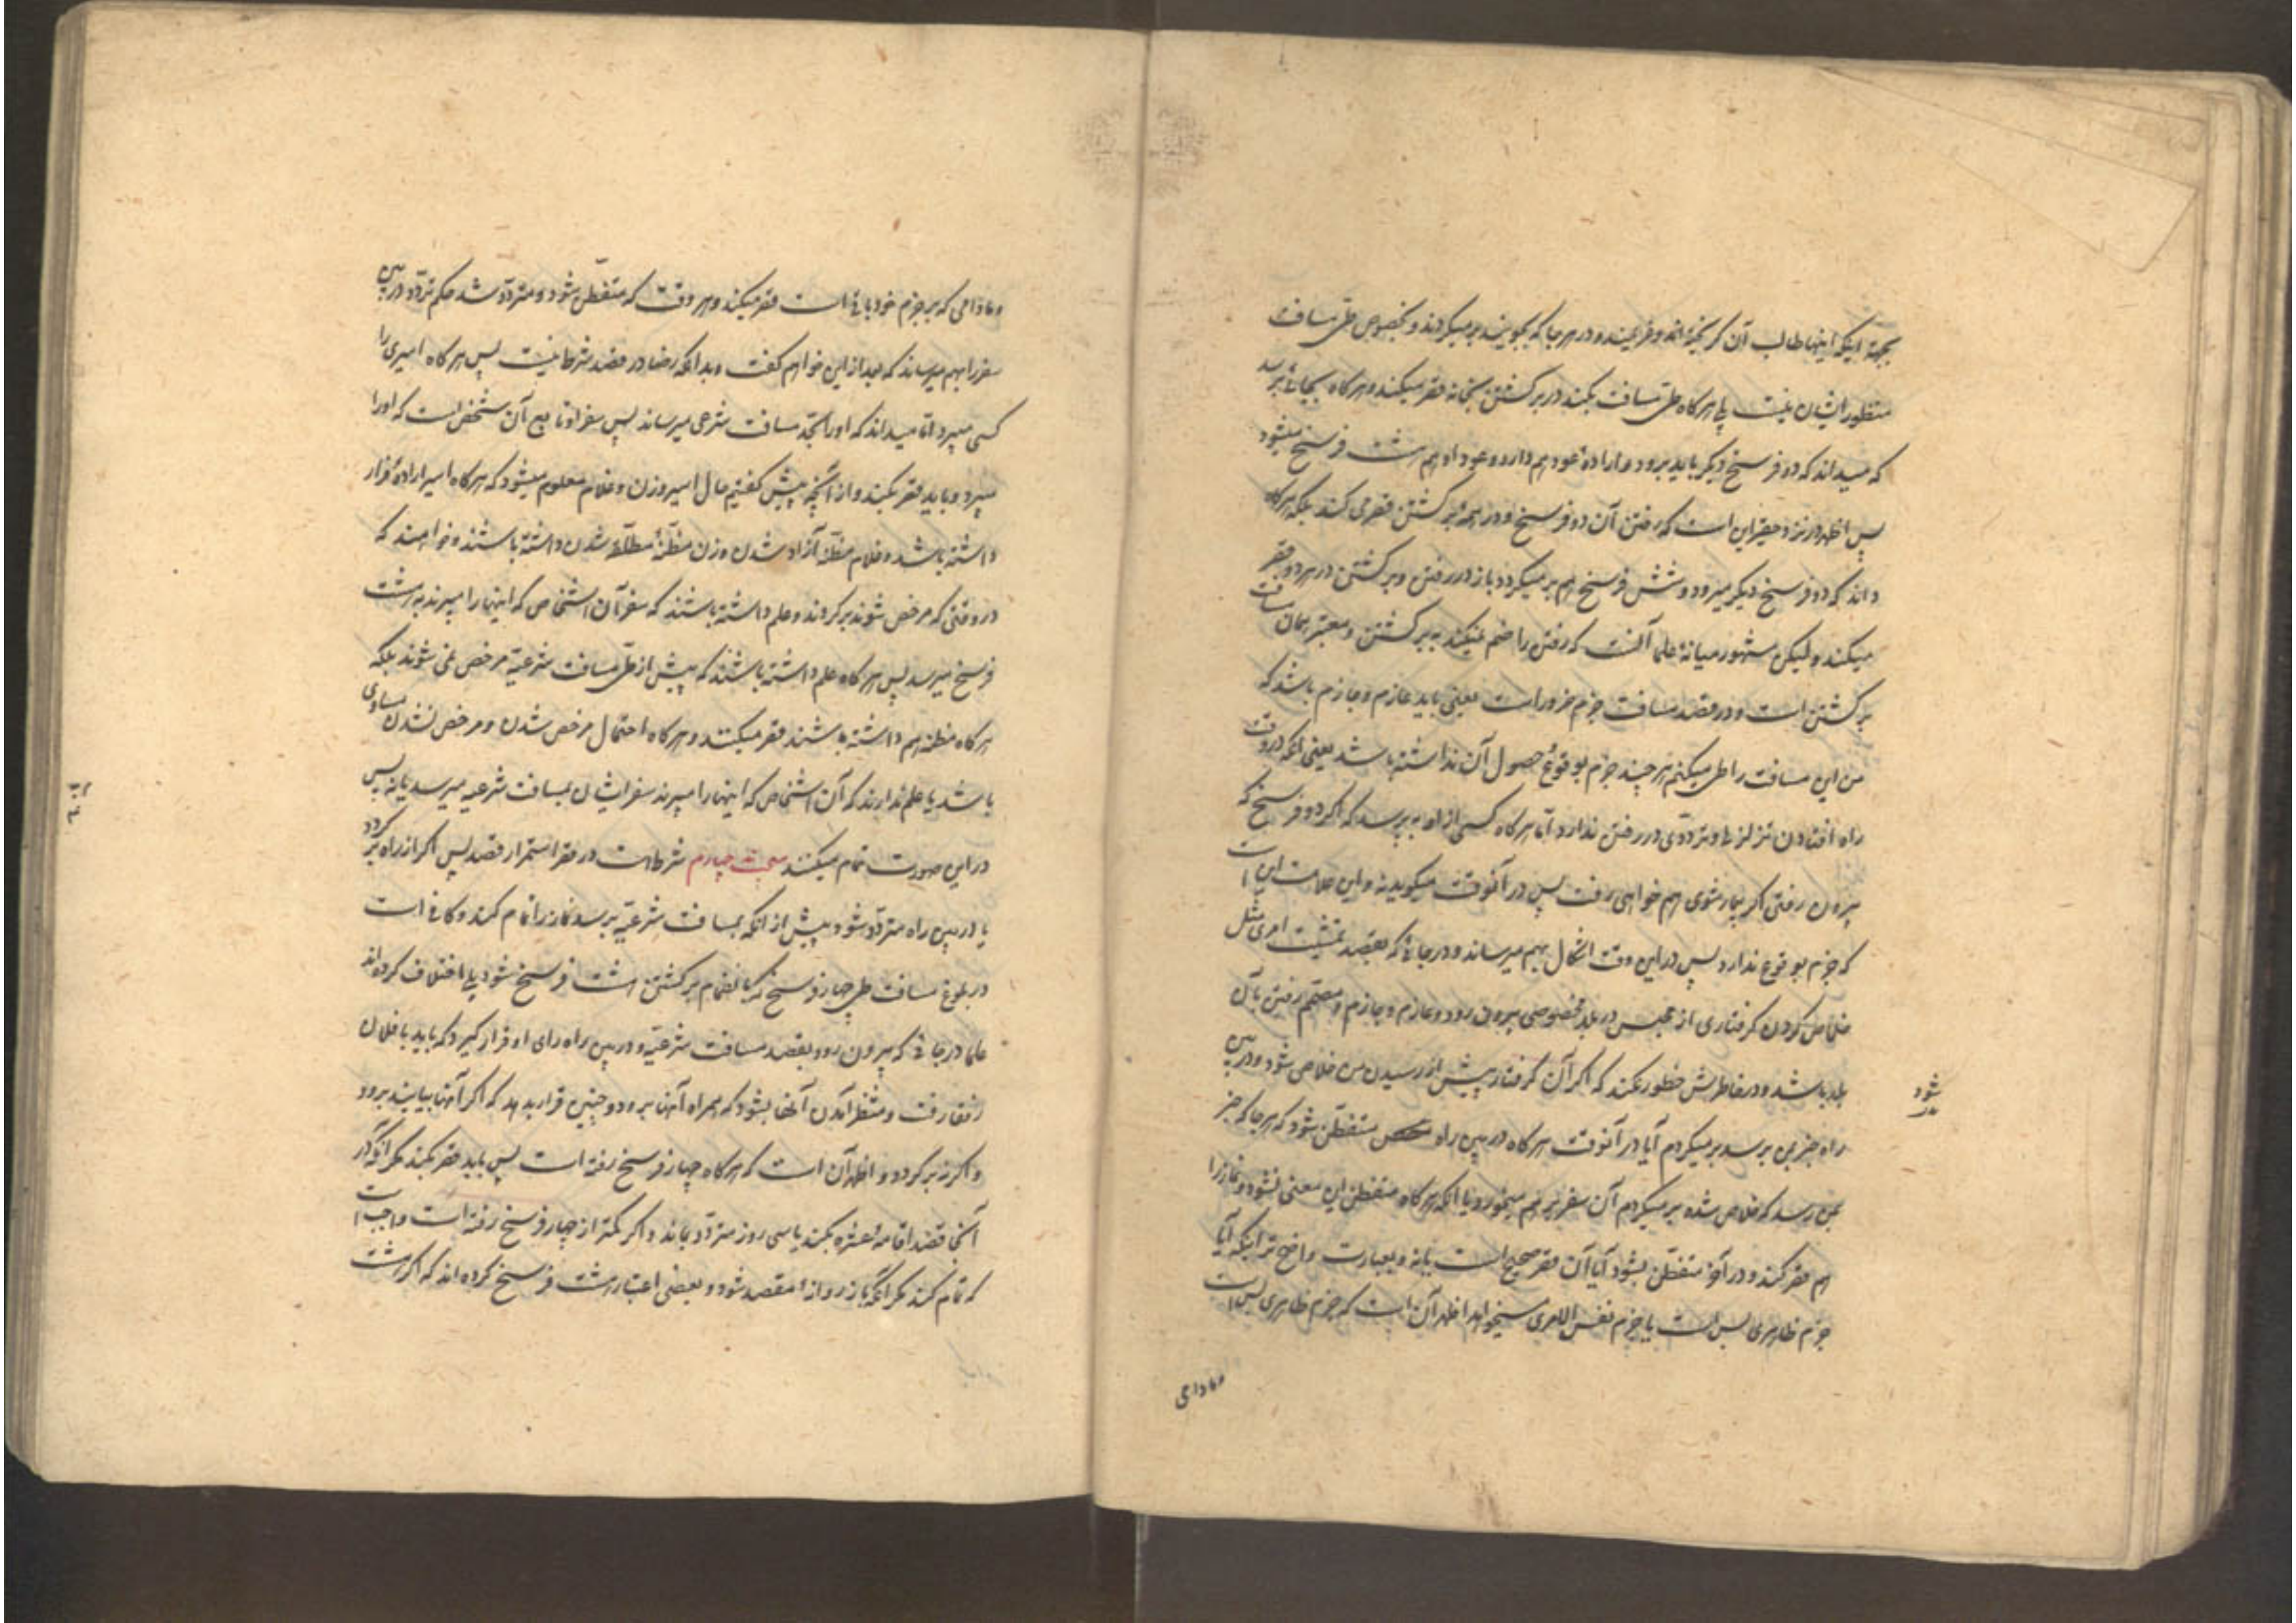 بجهة اینکه اینها طالب آن گریخته‌اند و غریمند و در هر جا که بجویند برمیگردند و بخصوص طی مسافت
منظور ایشان نیست بلی هرگاه طی مسافت بکنند در برگشتن بخانه قصر میکنند و هرگاه بجائی برسد
که میداند که دو فرسخ دیگر باید برود و اراده عود هم دارد و عود او هم هشت فرسخ میشود
پس اظهر در نزد حقیر این است که رفتن آن دو فرسخ و در همه برگشتن قصر می کند بلکه هرگاه
داند که دو فرسخ دیگر میرود و شش فرسخ هم برمیگردد باز در رفتن و برگشتن در هر دو قصر
میکند و لیکن مشهور میانه علما آنست که رفتن را ضم نمیکند به برگشتن و معتبر همان مسافت
برگشتن است و در قصد مسافت جزم ضرور است یعنی باید عازم و جازم باشد که
من این مسافت را طی میکنم هر چند جزم بوقوع حصول آن نداشته باشد یعنی آنکه در وقت
راه افتادن تزلزلی و تردّدی در رفتن ندارد اما هرگاه کسی از او به پرسد که اگر دو فرسخ که
بیرون رفتی اگر بیمار شوی هم خواهی رفت پس در آنوقت میگوید نه و این علامت این است
که جزم بوقوع ندارد پس در این وقت اشکال بهم میرساند و در جائی که بقصد تمشیت امری مثل
خلاص کردن گرفتاری از حبس در بلد مخصوصی بیرون رود و عازم و جازم و مصمّم رفتن بآن
بلد باشد و در خاطرش خطور نکند که اگر آن گرفتار پیش از رسیدن من خلاص شود و در بین
راه خبر بمن برسد برمیگردم آیا در آنوقت هرگاه در بین راه متفطّن شود که هر جا که خبر
بمن رسد که خلاص شده برمیگردم آن سفر برهم میخورد یا آنکه هرگاه متفطن این معنی نشود و نماز را
هم قصر کند و در آخر متفطّن بشود آیا آن قصر صحیح است یا نه و بعبارت واضح تر اینکه آیا
جزم ظاهری بس است یا جزم نفس الامری میخواهد اظهر آن است که جزم ظاهری بس است
شود
وما دامی
وما دامی که بر جزم خود باقی است قصر میکند و هر وقت که متفطّن شود و متردّد شد حکم تردّد در بین
سفر را بهم میرساند که بعد از این خواهم گفت و بدانکه رضا در قصد شرط نیست پس هرگاه اسیری را
کسی میبرد اما میداند که او را بحدّ مسافت شرعی میرساند پس سفر او تابع آن شخص است که او را
میبرد و باید قصر بکند و از آنچه پیش گفتیم حال اسیر و زن و غلام معلوم میشود که هرگاه اسیر اراده فرار
داشته باشد و غلام مظنّه آزاد شدن و زن مظنّه مطلّقه شدن داشته باشند و خواهند که
در وقتی که مرخص شوند برگردند و علم داشته باشند که سفر آن اشخاص که اینها را میبرند به هشت
فرسخ میرسد پس هرگاه علم داشته باشند که پیش از طی مسافت شرعیّه مرخص نمی شوند بلکه
هرگاه مظنه هم داشته باشند قصر میکنند و هرگاه احتمال مرخص شدن و مرخص نشدن مساوی
باشد یا علم ندارند که آن اشخاص که اینها را میبرند سفر ایشان بمسافت شرعیه میرسد یا نه پس
در این صورت تمام میکنند مبحث چهارم شرط است در قصر استمرار قصد پس اگر از راه برگردد
یا در بین راه متردّد شود پیش از آنکه بمسافت شرعیّه برسد نماز را تمام کند و کافی است
در بلوغ مسافت طی چهار فرسخ که با نضمام برگشتن هشت فرسخ شود بلی اختلاف کرده اند
علما در جائی که بیرون رود بقصد مسافت شرعیّه و در بین راه رای او قرار گیرد که باید با فلان
رفقا رفت و منتظر آمدن آنها بشود که همراه آنها برود و چنین قرار بدهد که اگر آنها بیایند برود
و اگر نه برگردد و اظهر آن است که هرگاه چهار فرسخ رفته است پس باید قصر بکند مگر آنکه در
آنجا قصد اقامه عشره بکند یا سی روز متردّد بماند و اگر کمتر از چهار فرسخ رفته است واجب است
که تمام کند مگر آنکه باز روانه مقصد شود و بعضی اعتبار هشت فرسخ کرده اند که اگر هشت